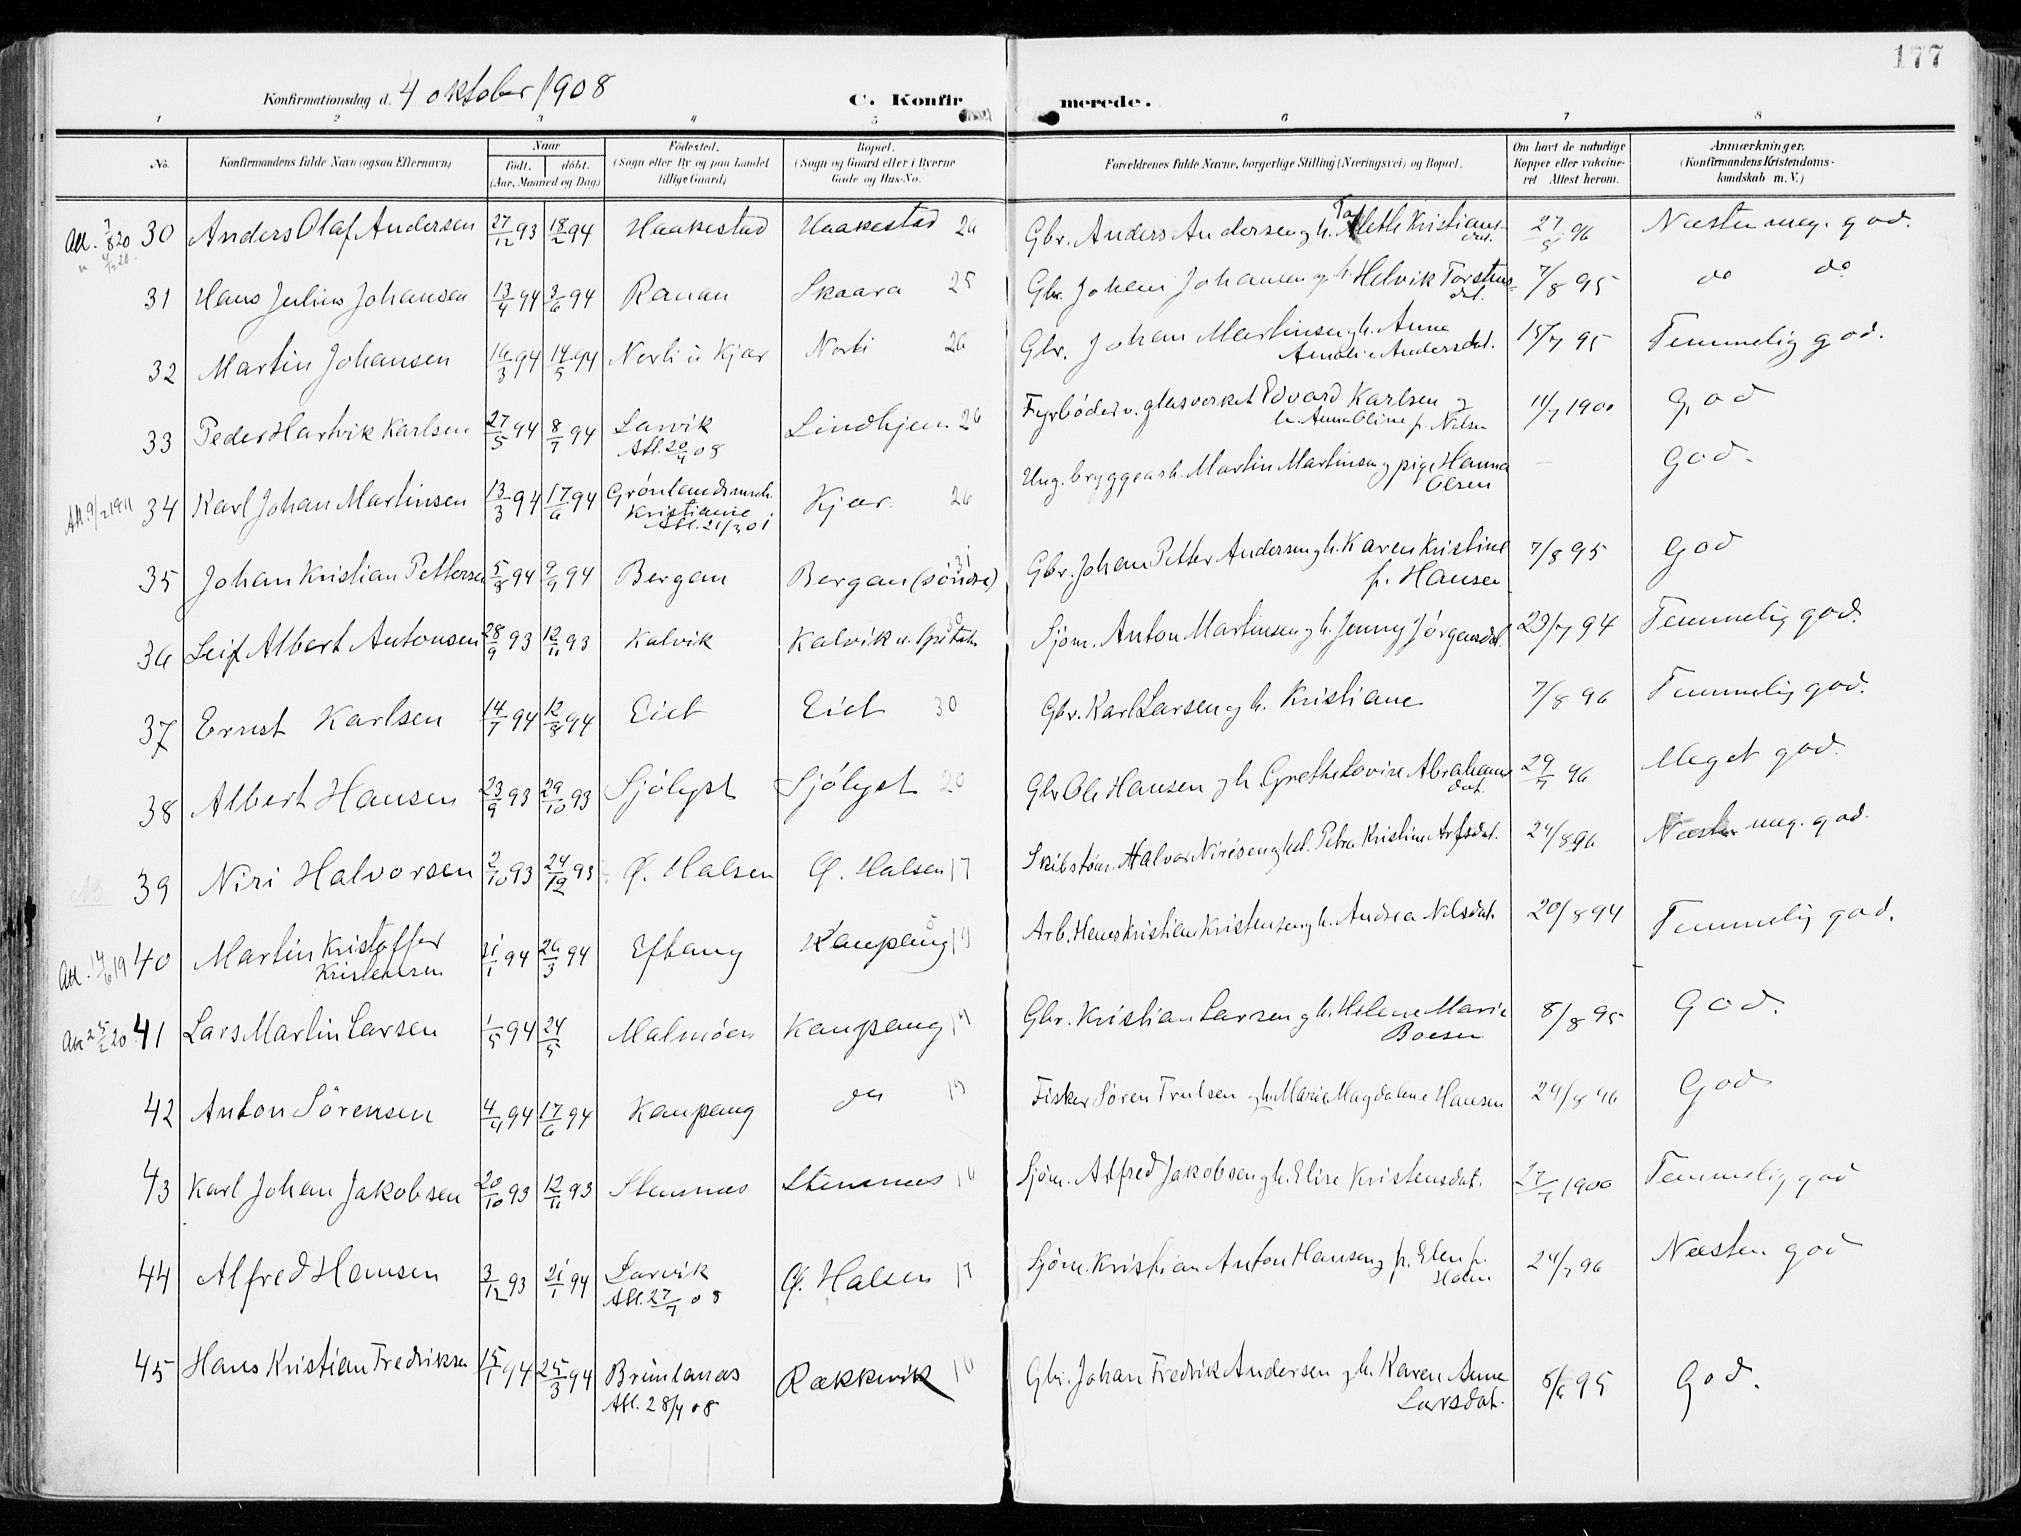 177
Konfirmationsdag d. 4 oktober 1908
C. Konfirmerede.
1 2 3 4 5 6 7 8
No. Konfirmandens fulde Navn (ogsaa Efternavn) Naar født. døbt. (Aar, Maaned og Dag) Fødested. (Sogn eller By og paa Landet tillige Gaard) Bopæl. (Sogn og Gaard eller i Byerne Gade og Hus-No. Forældrenes fulde Navne, borgerlige Stilling (Næringsvei) og Bopæl. Om havt de naturlige Kopper eller vakcineret Attest herom. Anmærkninger. (Konfirmandens Kristendomskundskab m. V.)
30 Anders Olaf Andersen 27/12 93 18/2 94 Haakestad Haakestad 26 Gbr. Anders Andersen og h. Kristiansdat. 27/5 96 Næsten meg. god.
31 Hans Julius Johansen 13/4 94 3/6 94 Ranan Skaara 25 Gbr. Johan Johansen og h. Helvik Torstensdat. 7/8 95 do do
32 Martin Johansen 16/3 94 14/5 94 Norli i Kjær Norli 26 Gbr. Johan Martinsen og h. Anne Amalie Andersdat. 15/7 95 Temmelig god.
33 Peder Hartvik Karlsen 27/5 94 8/7 94 Larvik Att. 20/4 08 Lindhjem 26 Fyrbøder v. glasverket Edvard Karlsen og h. Anna Oline f. Nilsen 11/7 1900 God
34 Att. 9/2 1911 Karl Johan Martinsen 13/3 94 17/6 94 Kristiania Att. 21/3 01 Kjær. 26 Ung. bryggearb. Martin Martinsen og pige Hanna Olsen — God.
35 Johan Kristian Pettersen 5/8 94 9/9 94 Bergan Bergan (søndre) 31 Gbr. Johan Petter Andersen og h. Karen Kristine f. Hansen 7/8 95 God
36 Leif Albert Antonsen 28/9 93 12/11 93 Kalvik Kalvik 30 Sjøm. Anton Martinsen og h. Jenny Jørgensdat. 23/7 94 Temmelig god.
37 Ernst Karlsen 14/7 94 12/8 94 Eiet Eiet 30 Gbr. Karl Larsen og h. Kristiane 7/8 96 Temmelig god.
38 Albert Hansen 23/9 93 29/10 93 Sjølyst Sjølyst 20 Gbr Ole Hansen og h. Grethe Lovise Abrahamsdat. 29/7 96 Meget god.
39 Niri Halvorsen 2/10 93 24/12 93 Ø. Halsen Ø. Halsen 17 Skibstøm. Halvor Nirisen og h. Petra Kristine 24/8 96 Næsten meg. god.
40 Att. 14/6 19 Martin Kristoffer Kristensen 31/1 94 26/3 94 Eftang Kaupang 19 Arb. Hans Kristian Kristensen og h. Andrea Nilsdat. 20/8 94 Temmelig god.
41 Lars Martin Larsen 1/5 94 24/5 Malmøen Kaupang 19 Gbr. Kristian Larsen og h. Helene Marie Boesen 8/8 95 God.
42 Anton Sørensen 4/4 94 17/6 94 Kaupang do 19 Fisker Søren Trulsen og h. Marie Magdalene Hansen 24/8 96 God
43 Karl Johan Jakobsen 20/10 93 12/11 93 Stensnæs Stensnæs 16 Sjøm. Alfred Jakobsen og h. Elise Kristensdat. 27/7 1900 Temmelig god
44 Alfred Hansen 3/12 93 21/1 94 Larvik Att. 27/7 08 Ø. Halsen 17 Sjøm. Kristian Anton Hansen og Elen f. Holm 24/7 96 Næsten god
45 Hans Kristian Fredriksen 15/1 94 25/3 94 Brunlanæs Att. 28/4 08 Rækkevik 16 Gbr. Johan Fredrik Andersen og h. Karen Anne Larsdat. 8/6 95 God.